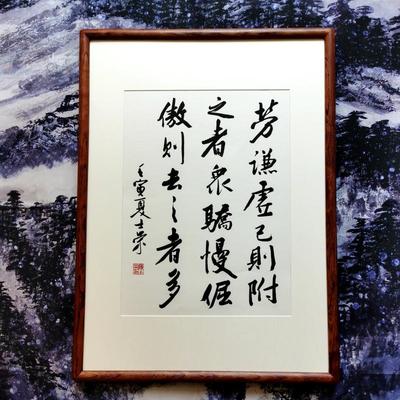 劳谦虚己则附
之者众骄慢倨
傲则去之者多
壬寅夏士荣